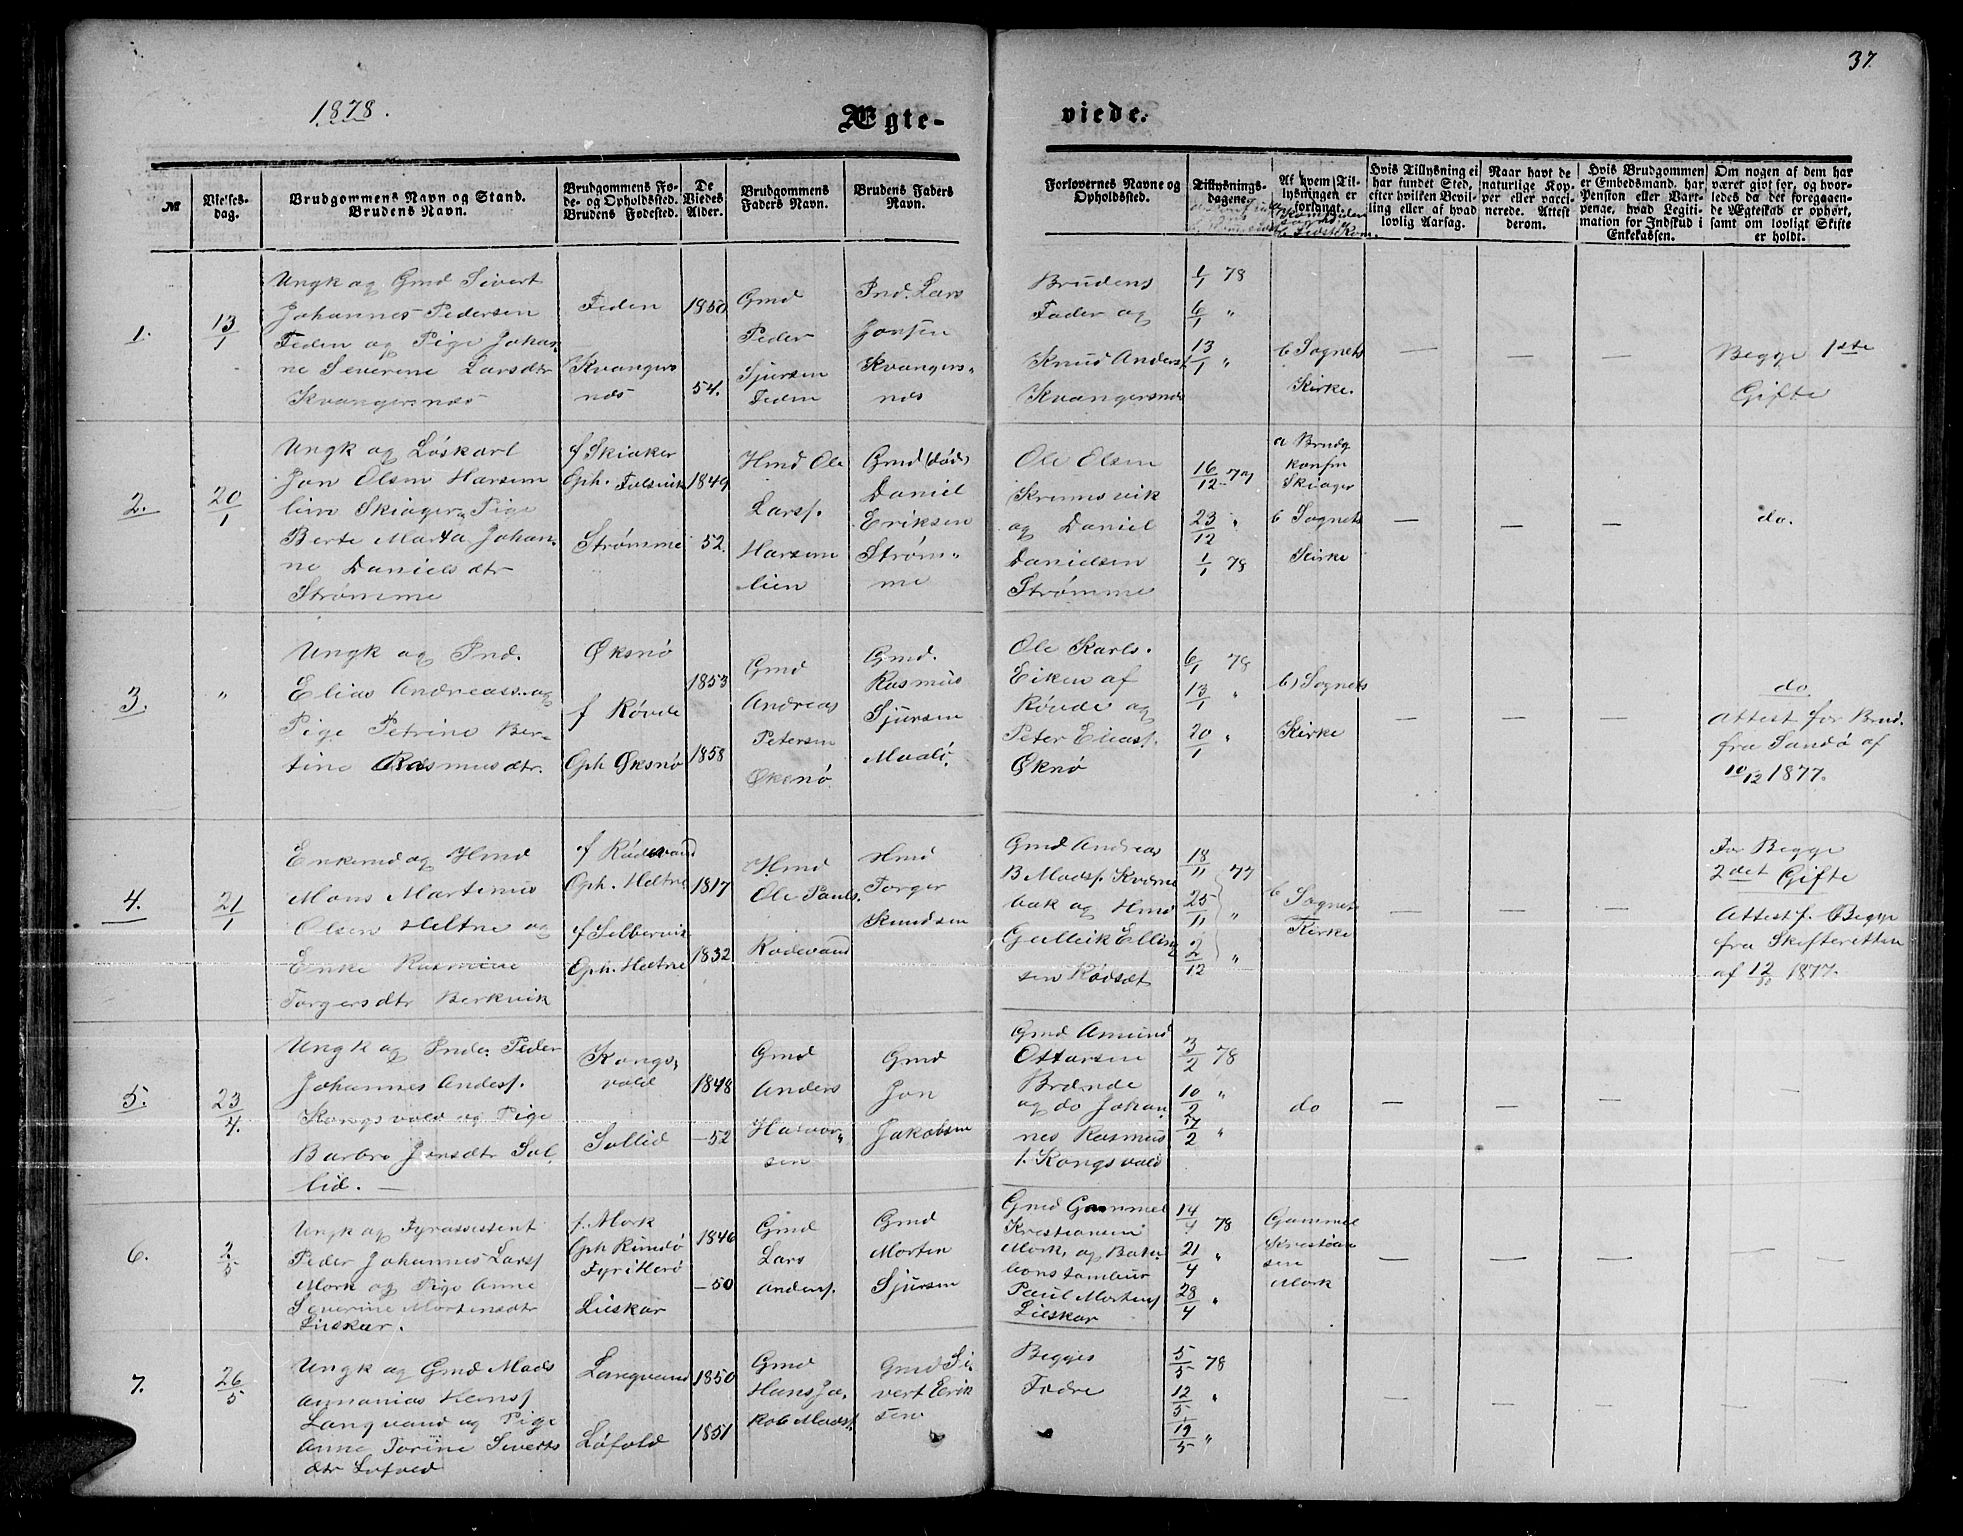 37.
1878.
Ægte-
viede.
№
Vielses-
dag.
Brudgommens Navn og Stand.
Brudens Navn.
Brudgommens Fø-
de- og Opholdssted.
Brudens Fødested.
De
Viedes
Alder.
Brudgommens
Faders Navn.
Brudens Faders
Navn.
Forlovernes Navne og
Opholdssted.
Tillysnings-
dagene.
Af hvem Til-
lysningen er
forlangt.
Hvis Tillysning ei
har fundet Sted,
efter hvilken Bevil-
ling eller af hvad
lovlig Aarsag.
Naar havt de
naturlige Kop-
per eller vacci-
nerede. Attest
derom.
Hvis Brudgommen
er Embedsmand, har
Pension eller Vart-
penge, hvad Legiti-
mation for Indskud i
Enkekassen.
Om nogen af dem har
været givt før, og hvor-
ledes da det foregaaen-
de Ægteskab er ophørt,
samt om lovligt Skifte
er holdt.
1.
13/1
Ungk og Gmd Sivert
Johannes Pedersen
Feden og Pige Johan-
ne Severine Larsdtr
Kvangersnæs
Feden
Kvangers
næs
1850
54.
Gmd
Peder
Sjursen
Feden
Ind. Lars
Jonsen
Kvangers-
næs
Brudens
Fader og
Knud Anders.
Kvangersnæs
1/1 78
6/1 "
13/1 "
b Sognets
Kirke.
—
—
—
Begge 1ste
Gifte
2.
20/1
Ungk og Løskarl
Jon Olsen Harsem
lien Skiager, Pige
Berte Marta Johan-
ne Daniels dtr
Strømme
f Skiaker
Oph. Falsvik
Strømme
1849
52.
Hmd Ole
Larss.
Harsem
lien
Gmd (død)
Daniel
Eriksen
Strøm-
me
Ole Olsen
og Daniel
Danielsen
Strømme
16/12 77
23/12 "
1/1 78
a Brudg
konfm
Skiager
b Sognets
Kirke
—
—
—
do.
3.
"
Ungk og Ind.
Elias Andreass. og
Pige Petrine Ber-
tine Rasmusdtr.
Øksnø
f Røvde
Oph Øksnø
1853
1858
Gmd
Andreas
Petersen
Øksnø
Gmd.
Rasmus
Sjursen
Ole Karls.
Eiken af
Røvde og
Peter Eliass.
Øknø
6/1 78
13/1 "
20/1 "
b) Sognets
Kirke
—
—
—
do
Attest for Brud.
fra Sandø af
10/12 1877.
4.
21/1
Enkemd og Hmd
Mons Martinus
Olsen Heltne og
Enke Rasmine
Torgersdtr Berkvik
f Rødevand
Oph. Heltne
f Selbervik
Oph. Heltne
1817
1832
Hmd
Ole Pauls.
Rødevand
Hmd
Torger
Knudsen
Gmd Andreas
B Madss. Kverne
bak og Hmd
Gullik Elling
sen Rødsæt
18/11 77
25/11 "
2/12 "
b Sognets
Kirke
—
—
—
For Begge
2det Gifte
Attest f. Begge
fra Skifteretten
af 12/10 1877.
5.
23/4.
Ungk og Inde. Peder
Johannes Andess.
Kongsvold og Pige
Barbro Jonsdtr Sol-
lid. —
Kongs-
vold
Sollid
1848
—52
Gmd
Anders
Halvor-
sen
Gmd
Jon
Jakobsen
Gmd Amund
Ottarsen
Brænde
og do Johan-
nes Rasmus
s. Kongsvold
3/2 78
10/2 "
17/2 "
do
—
—
—
—
6.
2/5
Ungk og Fyrassistent
Peder Johannes Larss
Mork og Pige Anne
Severine Mortensdtr
Lieskar.
f. Mork
Oph Rundø
Fyr i Herø
Lieskar
1846
—50
Gmd
Lars
Anderss.
Gmd
Morten
Sjursen
Gmd Gammel
Kristiansen
Mork, og Bata-
lionstambur
Paul Mortens
Lieskar
14/4 78
21/4 "
28/4 "
Gammel
Kristian
sen
Mork
—
—
—
—
7.
26/5
Ungk og Gmd Mads
Annanias Hanss
Langvand og Pige
Anne Torine Siverts
dtr Løfold
Langvand
Løfold
1850
1851
Gmd
Hans Ja-
kob Madss.
Gmd Si-
vert Erik
sen
Begges
Fædre
5/5 78
12/5 "
19/5 "
—
—
—
—